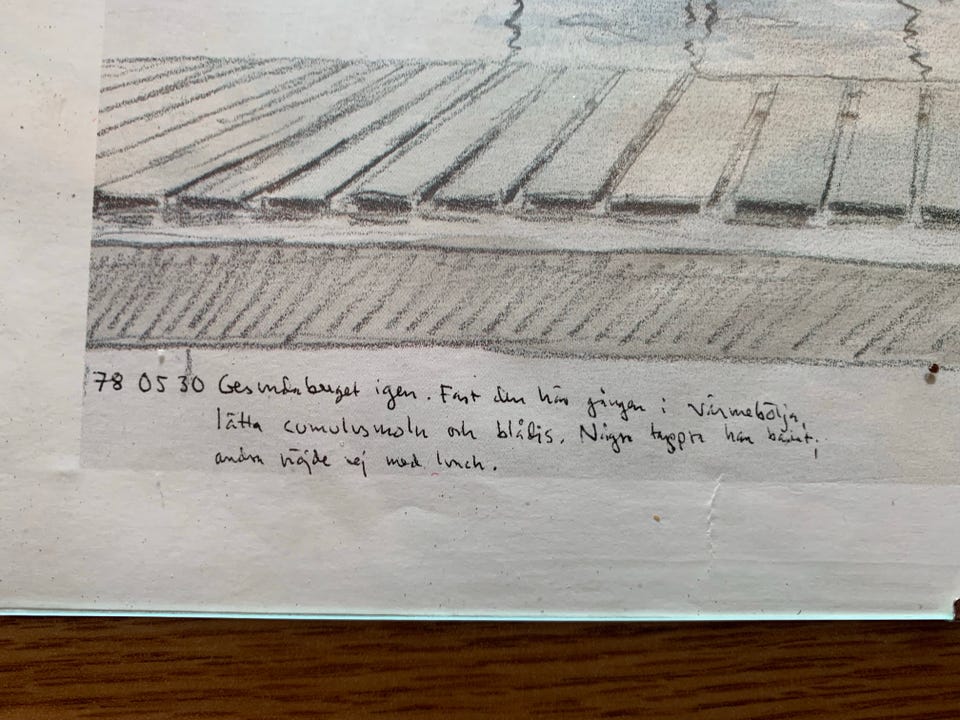 78 05 30 Gesundaberget igen. Fast den här gången i värmebölja,
lätta cumulusmoln och blådis. Några har badat;
andra nöjde sej med lunch.